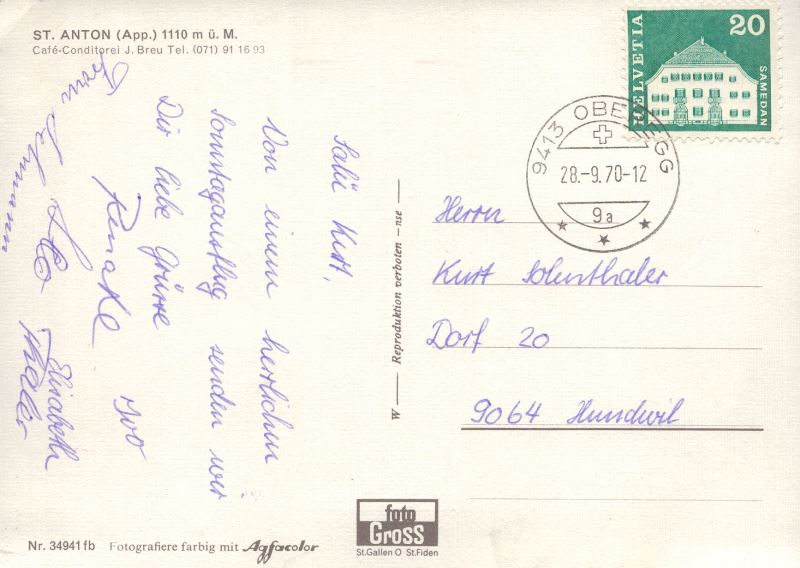 ST. ANTON (App.) 1110 m ü. M.
Café-Conditorei J. Breu Tel. (071) 91 16 93
Salü Kurt,
Von einem herrlichen
Sonntagausflug senden wir
Dir liebe Grüsse
Renate Ivo
Elisabeth
W — Reproduktion verboten - nse —
HELVETIA
20
SAMEDAN
9413 OBEREGG
28.-9.70-12
9a
Herrn
Kurt
Dorf 20
9064 Hundwil
foto
Gross
St.Gallen O St.Fiden
Nr. 34941fb Fotografiere farbig mit Agfacolor